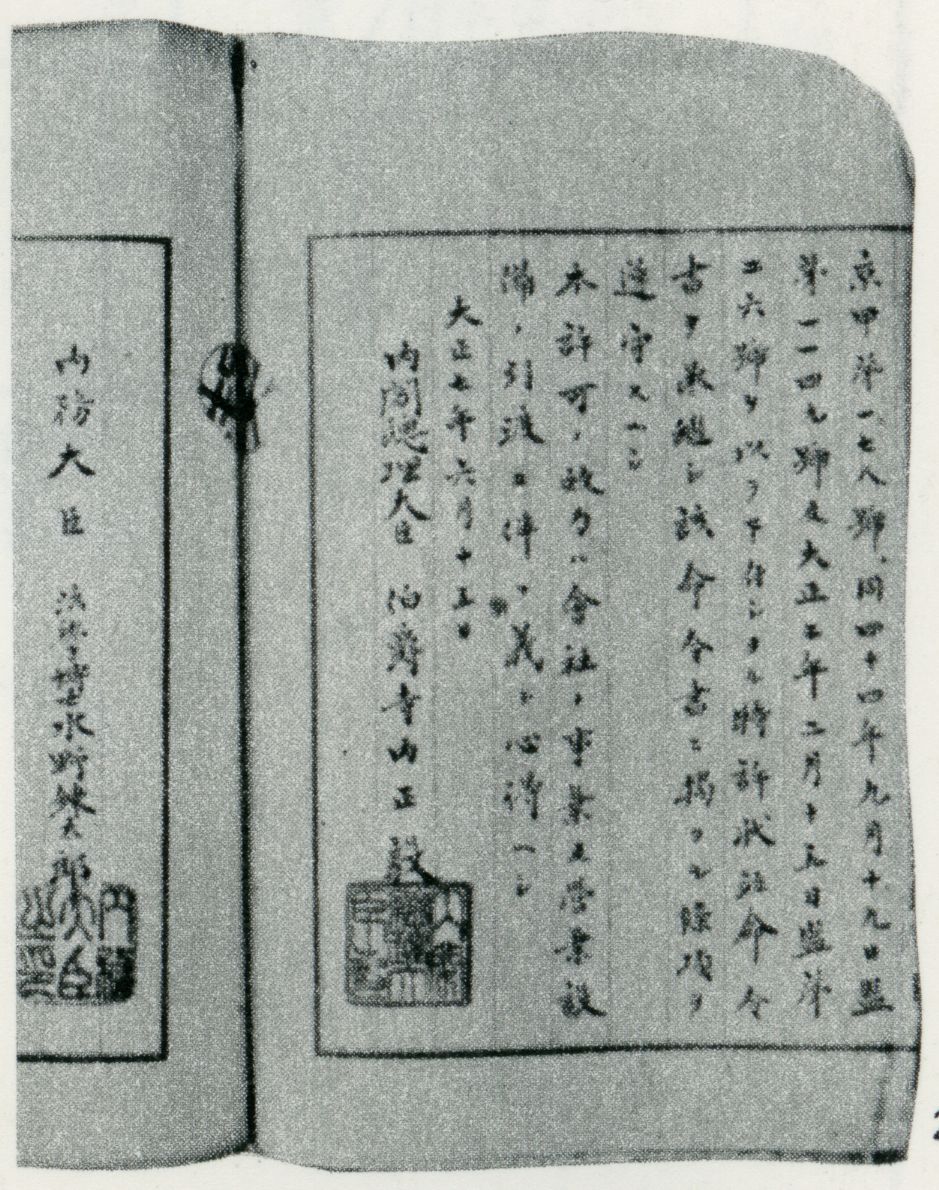 京甲第一七八號、同四十四年九月十九日監
第一一四九號及大正二年二月十五日監第
二六號ヲ以テ下付シタル特許状並命令
書ヲ承継シ該命令書ニ掲クル條項ヲ
遵守スヘシ
本許可ノ效力ハ會社ノ事業及營業設
備ノ引渡ニ伴フ義ト心得ヘシ
大正七年六月十五日
内閣總理大臣 伯爵寺内正毅
内務大臣 法學博士水野錬太郎